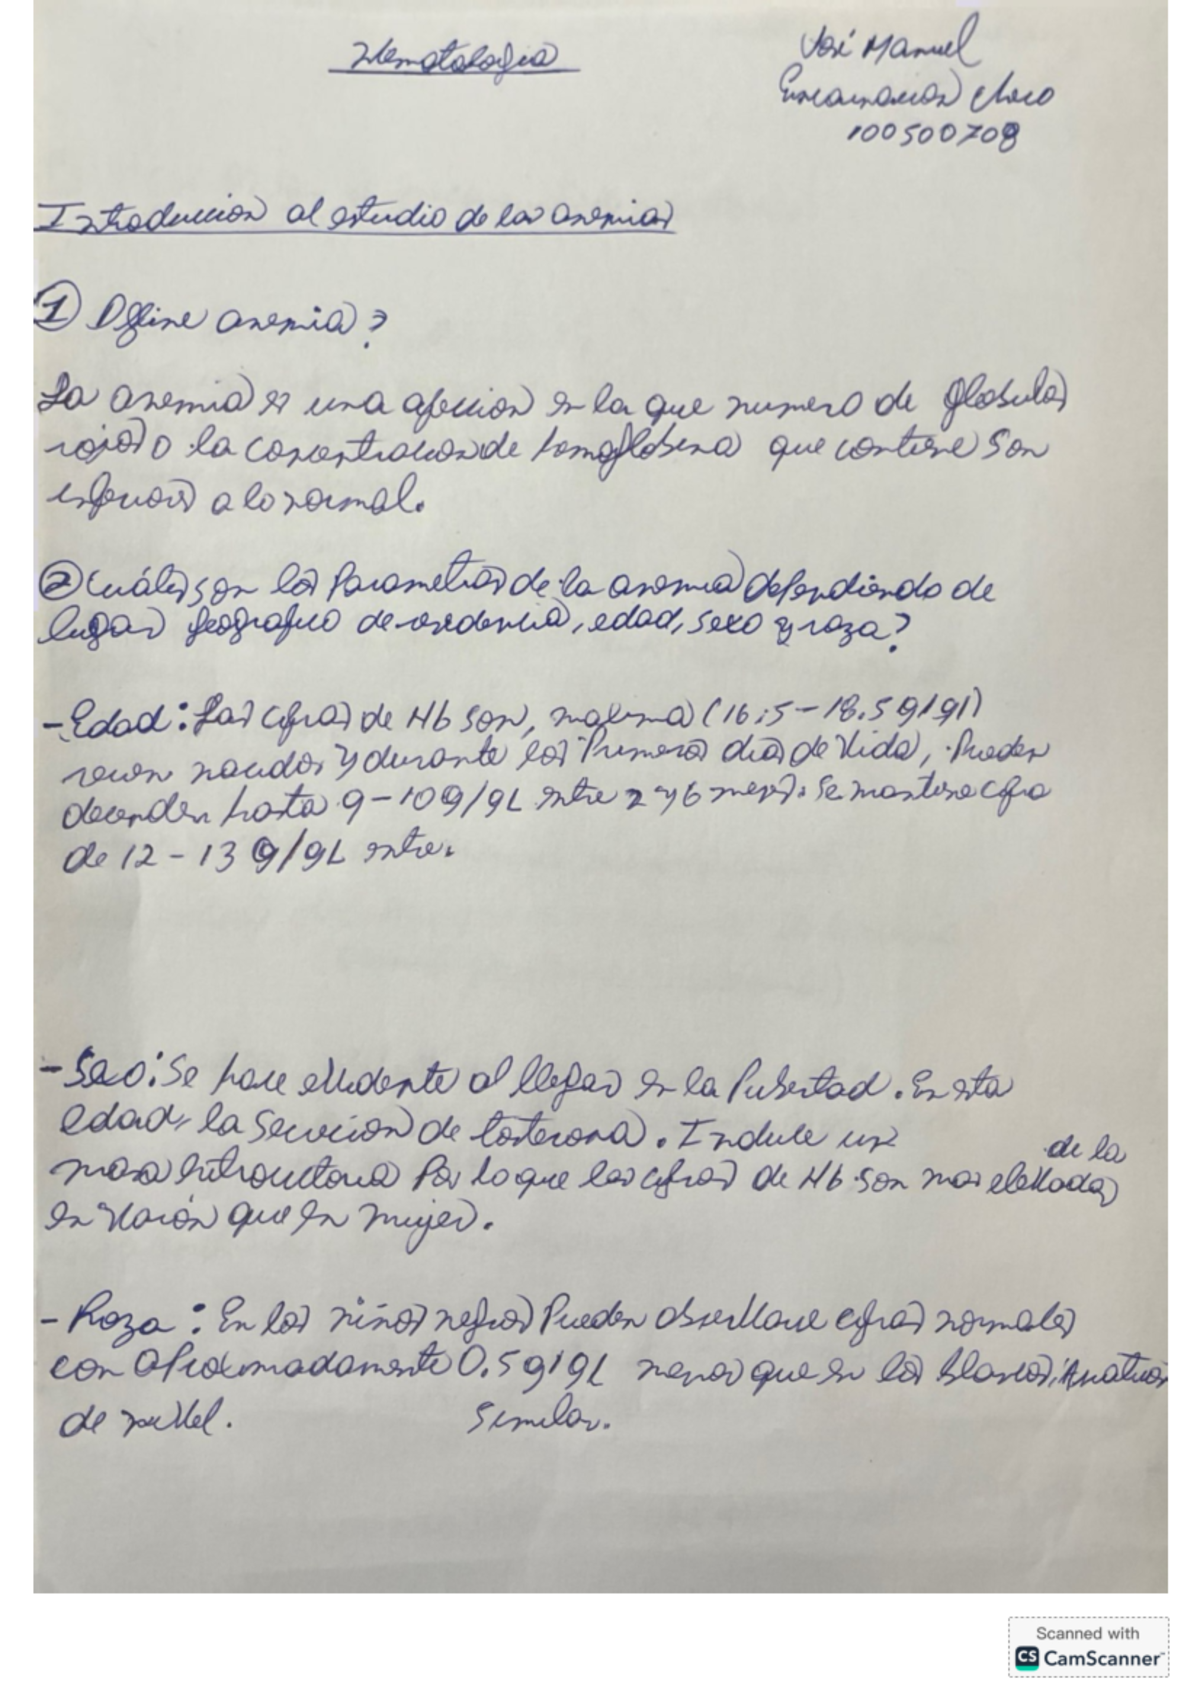 Hematologia
José Manuel
Encarnación
100500708
Introduccion al estudio de las anemias
① Define anemia?
La anemia es una afeccion en la que numero de globulos
rojos o la concentracion de hemoglobina que contiene son
inferiores a lo normal.
② Cuáles son los Parametros de la anemia dependiendo de
lugar geografico de residencia, edad, sexo y raza?
- Edad: Las cifras de Hb son, maxima (16.5-18.5 g/gl)
recien nacidos y durante los Primeros dias de vida, Pueden
decender hasta 9-10 g/gL entre 2 y 6 meses. Se mantiene cifra
de 12-13 g/gL entre.
- Sexo: Se hace evidente al llegar en la Pubertad. En esta
edad, la Secrecion de tosterona. Induce un
de la
masa Por lo que las cifras de Hb son mas elevadas
en varón que en mujer.
- Raza: En los niños negros Pueden observarse cifras normales
con aproximadamente 0.5 g/gL menos que en los blancos,
de nivel. similar.
Scanned with
CS CamScanner